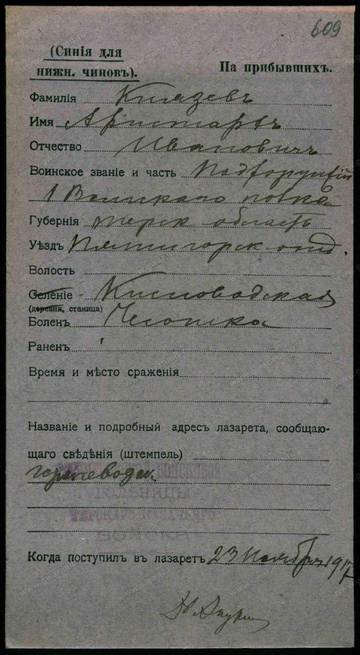 609
(Синія для
нижн. чиновъ).
На прибывшихъ.
Фамилія Князевъ
Имя Аристархъ
Отчество Ивановичъ
Воинское званіе и часть Подхорунжій
1 Волгскаго полка
Губернія Терск область
Уѣздъ Пятигорск отд.
Волость
Селеніе Кисловодская
(деревня, станица)
Боленъ Чесотка
Раненъ
Время и мѣсто сраженія
Названіе и подробный адресъ лазарета, сообщаю-
щаго свѣдѣнія (штемпель)
горячеводск
Когда поступилъ въ лазаретъ 23 Ноября 1917